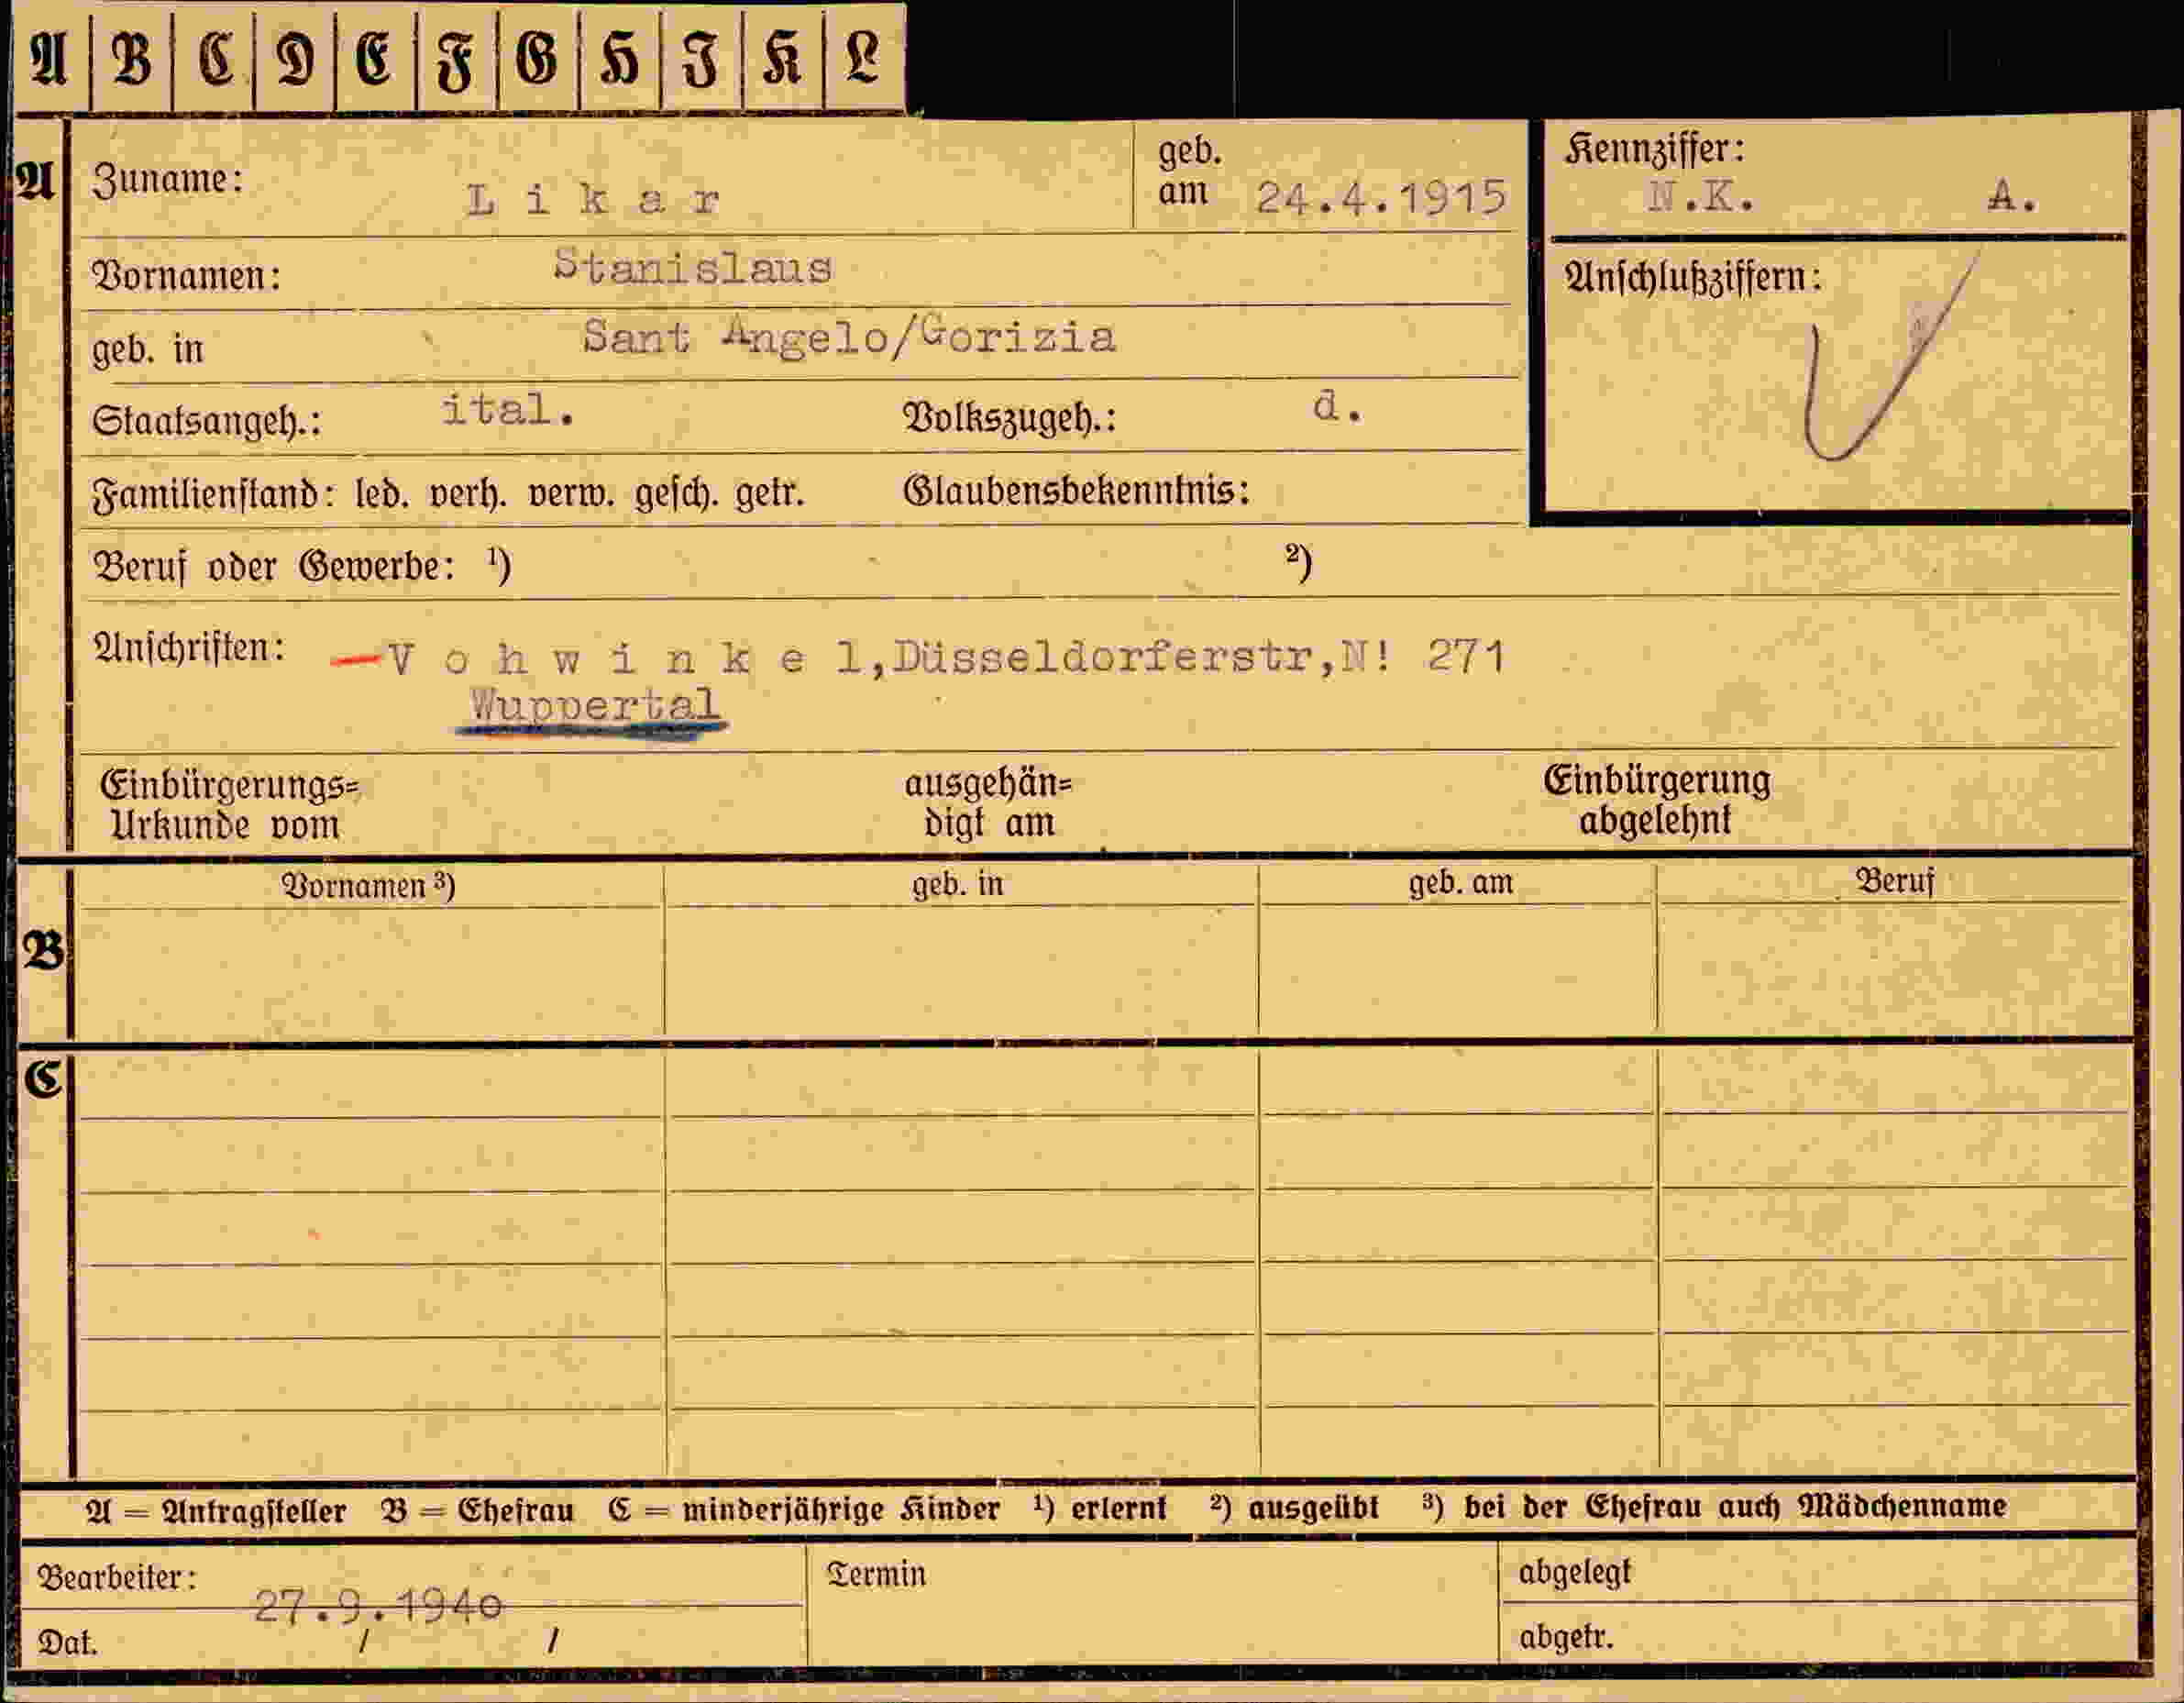 A B C D E F G H J K L
A Zuname: Likar geb. am 24.4.1915
Kennziffer: N.K. A.
Vornamen: Stanislaus
Anschlußziffern:
geb. in Sant Angelo/Gorizia
Staatsangeh.: ital. Volkszugeh.: d.
Familienstand: led. verh. verw. gesch. getr. Glaubensbekenntnis:
Beruf oder Gewerbe: ¹) ²)
Anschriften: —Vohwinkel,Düsseldorferstr,N! 271
Wuppertal
Einbürgerungs= ausgehän= Einbürgerung
Urkunde vom digt am abgelehnt
Vornamen ³) geb. in geb. am Beruf
B
C
A = Antragsteller B = Ehefrau C = minderjährige Kinder ¹) erlernt ²) ausgeübt ³) bei der Ehefrau auch Mädchenname
Bearbeiter: Termin abgelegt
27.9.1940
Dat. / / abgetr.